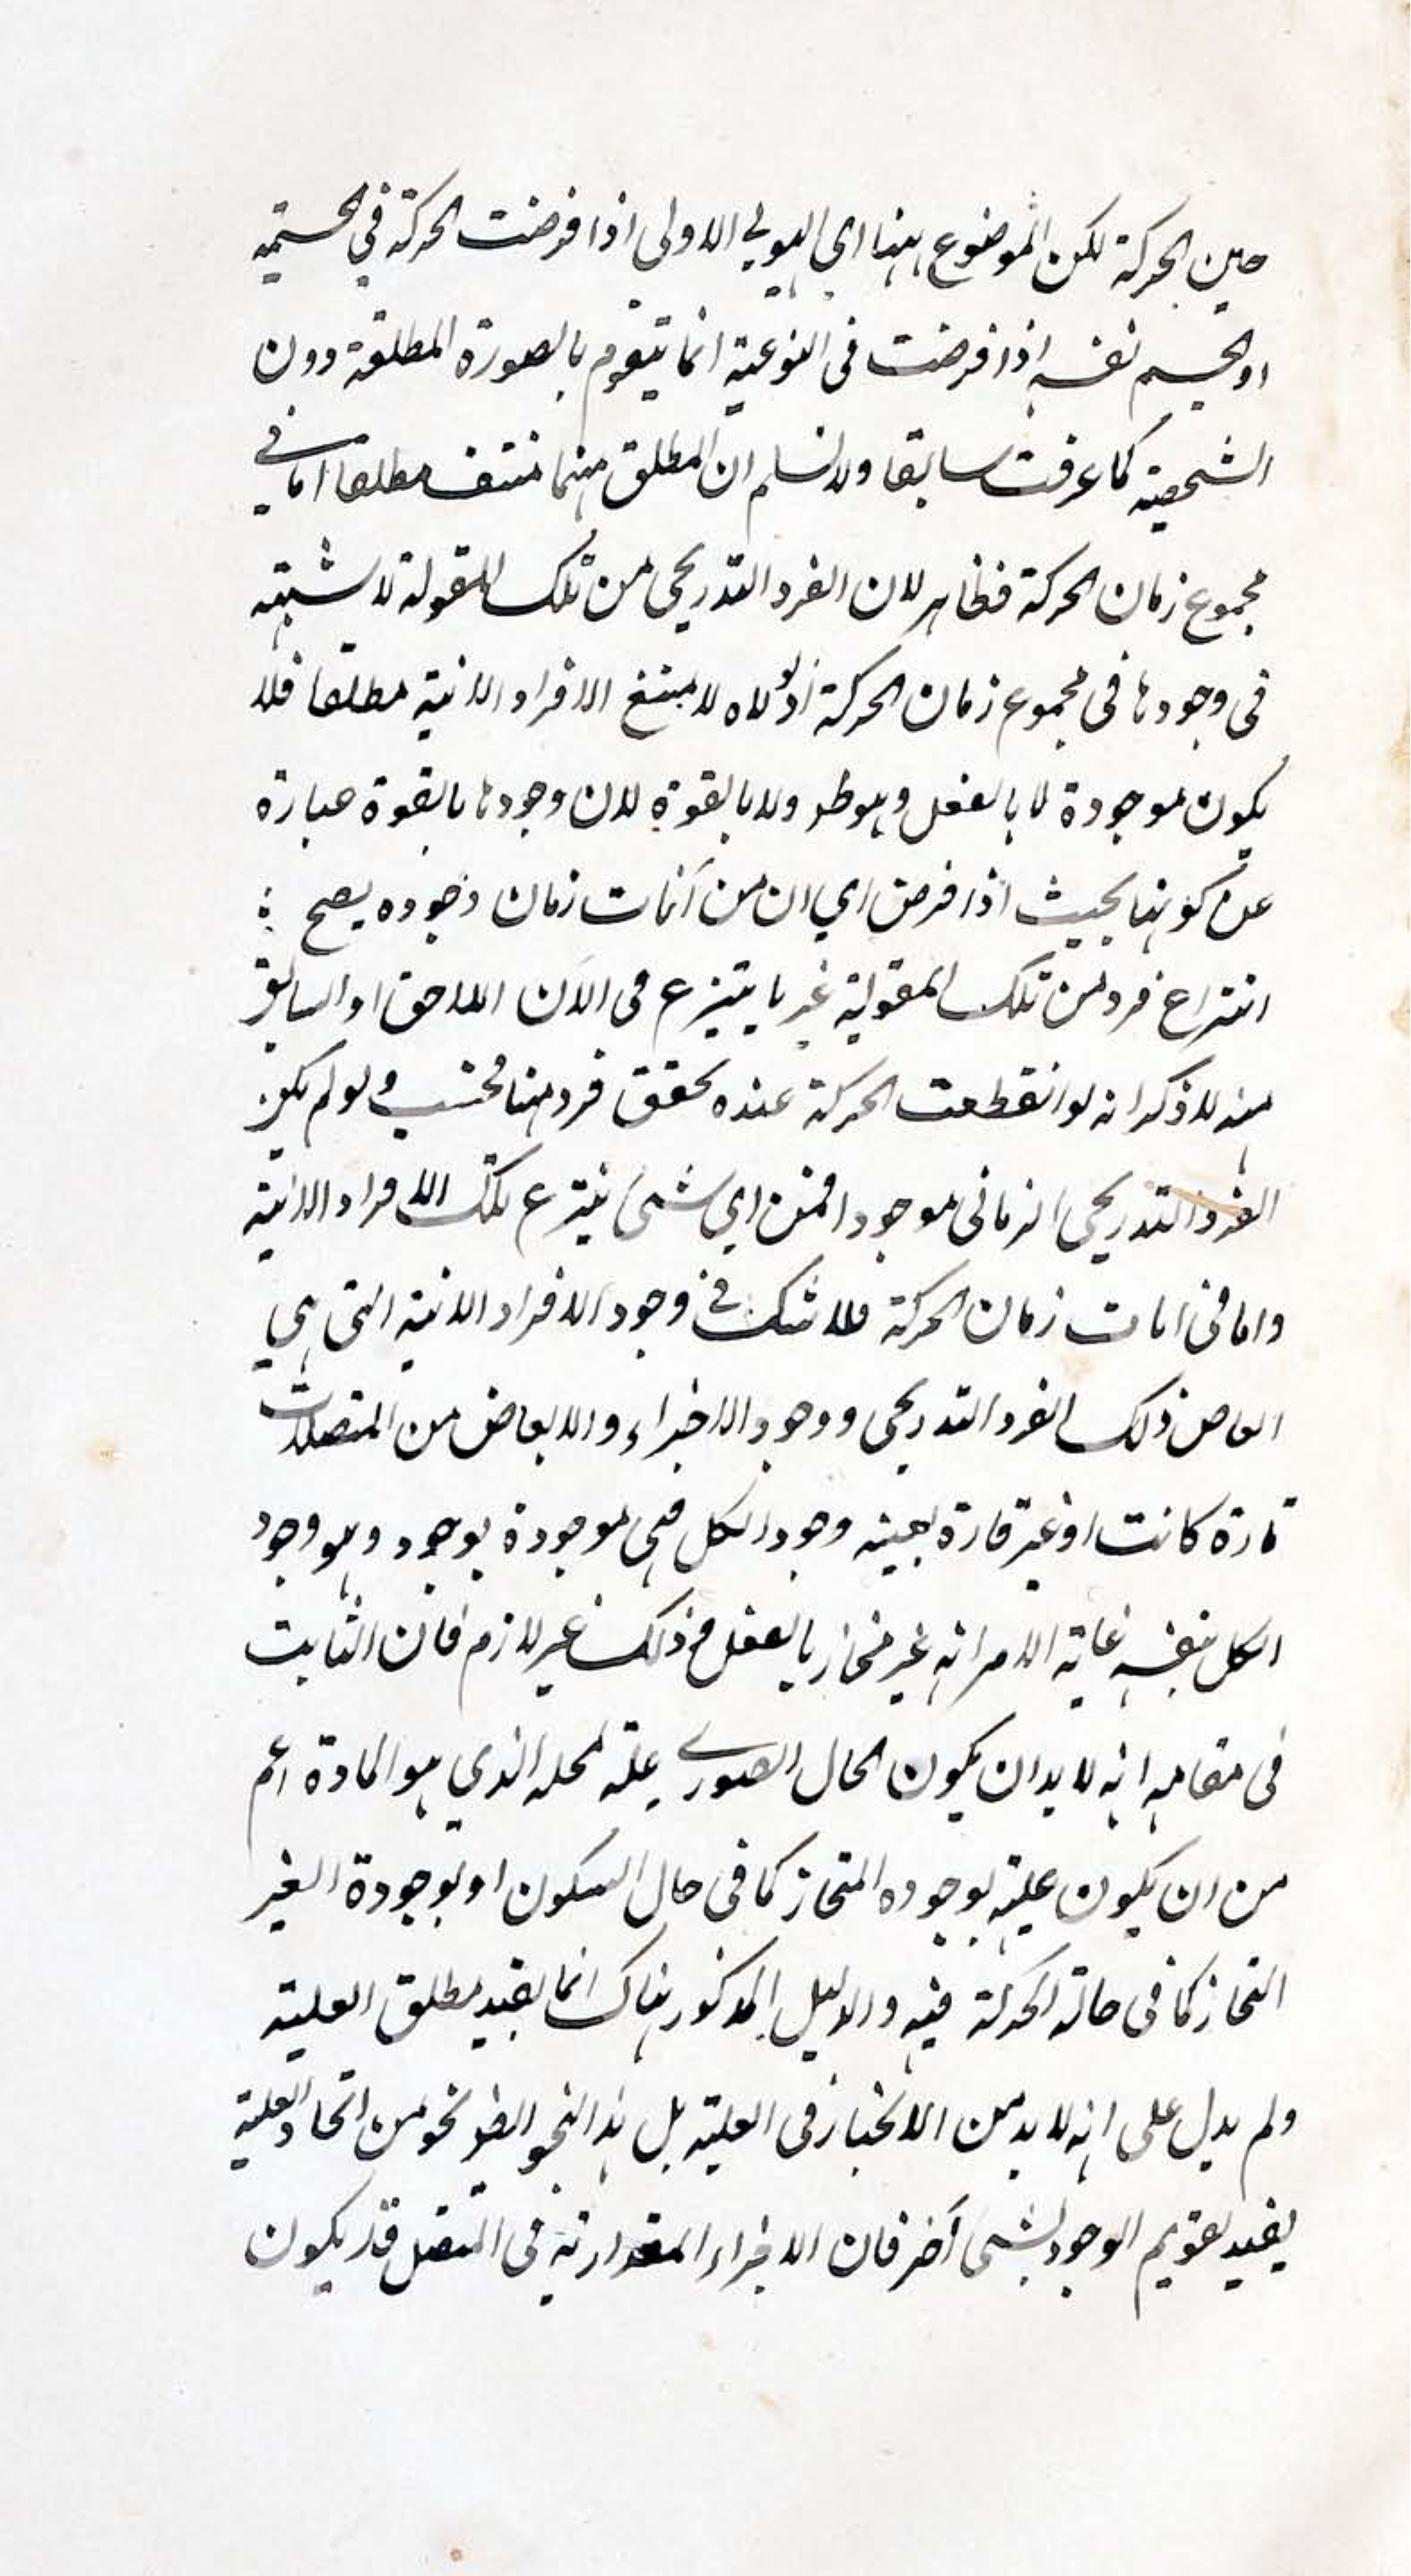 حين الحركة لكن الموضوع ههنا اي الهيولى الاولى اذا فرضت الحركة في الجسمية
او الجسم نفسه اذا فرضت في النوعية انما يتقوم بالصورة المطلقة دون
الشخصية كما عرفت سابقا ولا نسلم ان المطلق منهما منتف مطلقا اما في
مجموع زمان الحركة فظاهر لان الفرد التدريجي من تلك المقولة لا شبهة
في وجودها في مجموع زمان الحركة اذ لولاه لا متنع الافراد الانية مطلقا فلا
يكون موجودة لا بالفعل وهو ظ ولا بالقوة لان وجودها بالقوة عبارة
عن كونها بحيث اذا فرض اي ان من آنات زمان وجوده يصح
انتزاع فرد من تلك المقولية غير ما ينتزع في الآن اللاحق او السابق
منه لا ذكر انه لو انقطعت الحركة عنده تحقق فرد منها فحسب ولو لم يكن
الفرد التدريجي الزماني موجودا فمن اي شئ ينتزع تلك الافراد الانية
واما في انات زمان الحركة فلا شك في وجود الافراد الانية التي هي
ابعاض ذلك الفرد التدريجي ووجود الاجزاء والابعاض من المتصلات
قارة كانت او غير قارة بعينه وجود الكل فهي موجودة بوجود وهو وجود
الكل بنفسه غاية الامر انه غير منحاز بالفعل وذلك غير لازم فان الثابت
في مقامه انه لا بد ان يكون الحال الصوري علة لمحله الذي هو المادة اعم
من ان يكون علية بوجوده المنحاز كما في حال السكون او بوجودة الغير
النحاز كما في حالة الحركة فيه والدليل المذكور هناك انما يفيد مطلق العلية
ولم يدل على انه لا بد من الانحياز في العلية بل هذا النحو ايضا نحو من اتحاد العلية
يفيد تقويم الوجود لشئ آخر فان الاجزاء المقدارية في المتصل قد يكون